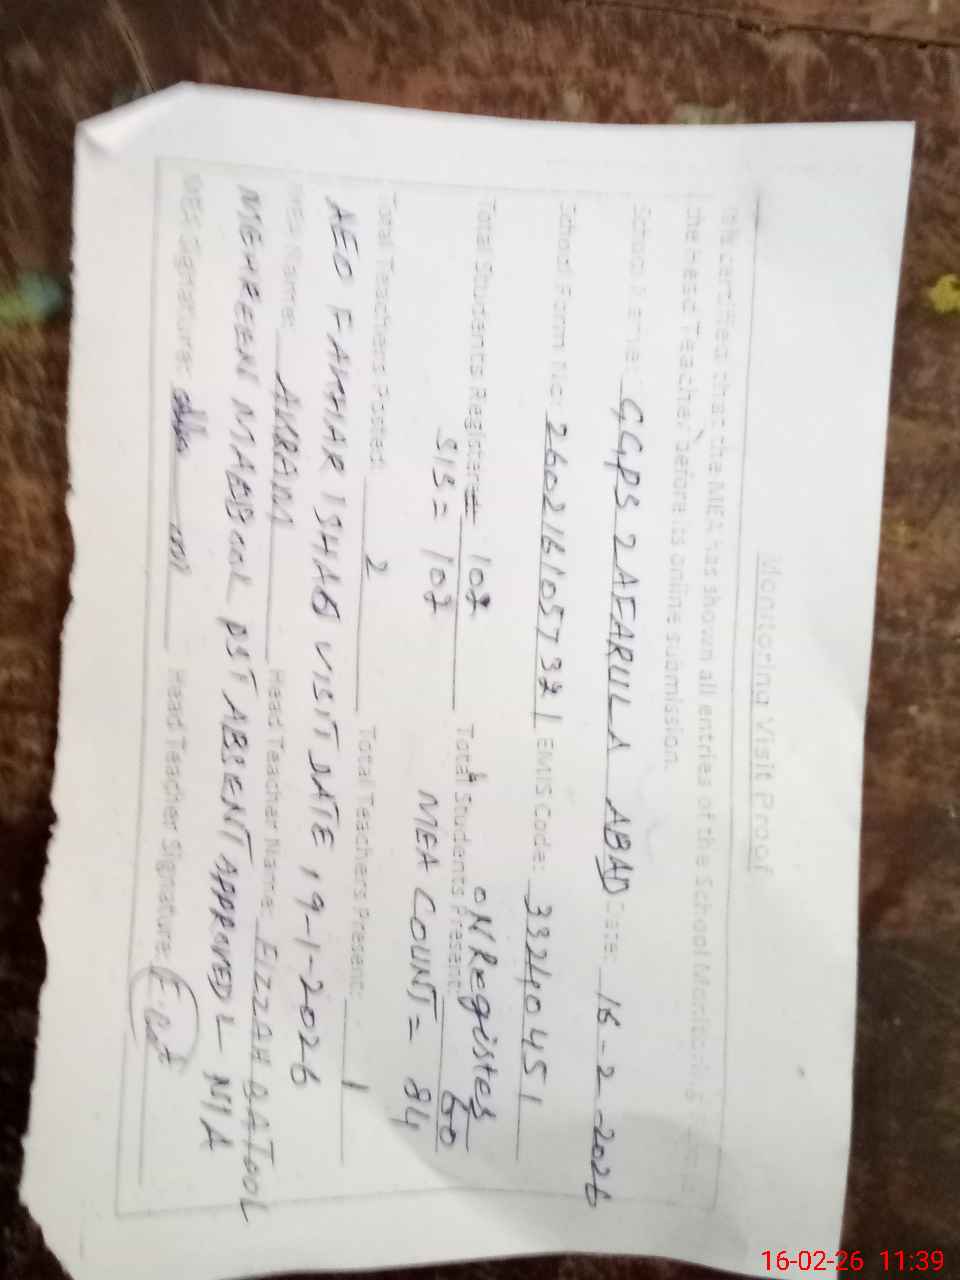 Monitoring Visit Proof
It is certified that the MEA has shown all entries of the School Monitoring
the Head Teacher before its online submission.
School Name: GGPS ZAFARULLA ABAD Date: 16-2-2026
School Form No: 260216105732 EMIS Code: 33240451
Total Students Registered 107 Total Students Present: ON Register 60
SIS = 107 MEA COUNT = 84
Total Teachers Posted: 2 Total Teachers Present: 1
AEO FAKHAR ISHAQ VISIT DATE 19-1-2026
MEA Name: AKRAM Head Teacher Name: FIZZAH BATOOL
MEHREEN MAQBOOL PST ABSENT APPROVED L- NIA
MEA Signature: Head Teacher Signature:
16-02-26 11:39